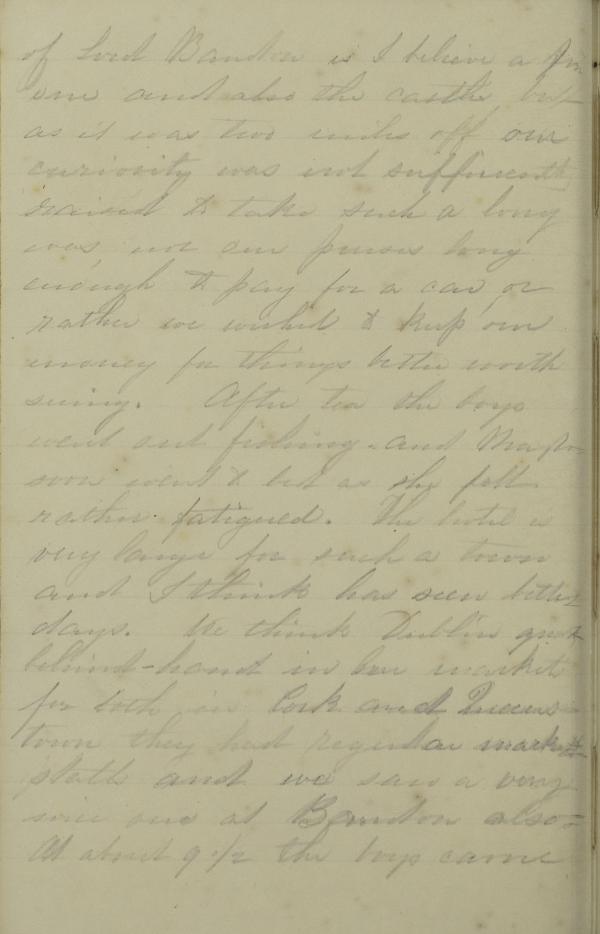 of Lord Bandon is I believe a fine
one and also the castle, but
as it was two miles off our
curiosity was not sufficiently
raised to take such a long
was, nor our purses long
enough to pay for a car, or
rather we wished to keep our
money for things better worth
seeing. After tea the boys
went out fishing - and
soon went to bed as she felt
rather fatigued. The hotel is
very large for such a town
and I think has seen better
days. We think Dublin quite
behind-hand in her market
for both in Cork and Queens-
town they had regular market
stalls and we saw a very
nice one at Bandon also-
At about 9 1/2 the boys came